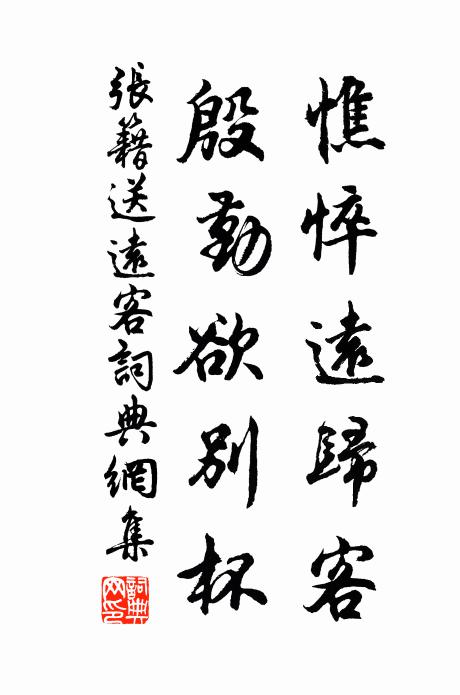 憔悴遠歸客
殷勤欲別杯
張籍送遠客詞典網集
詞典网印